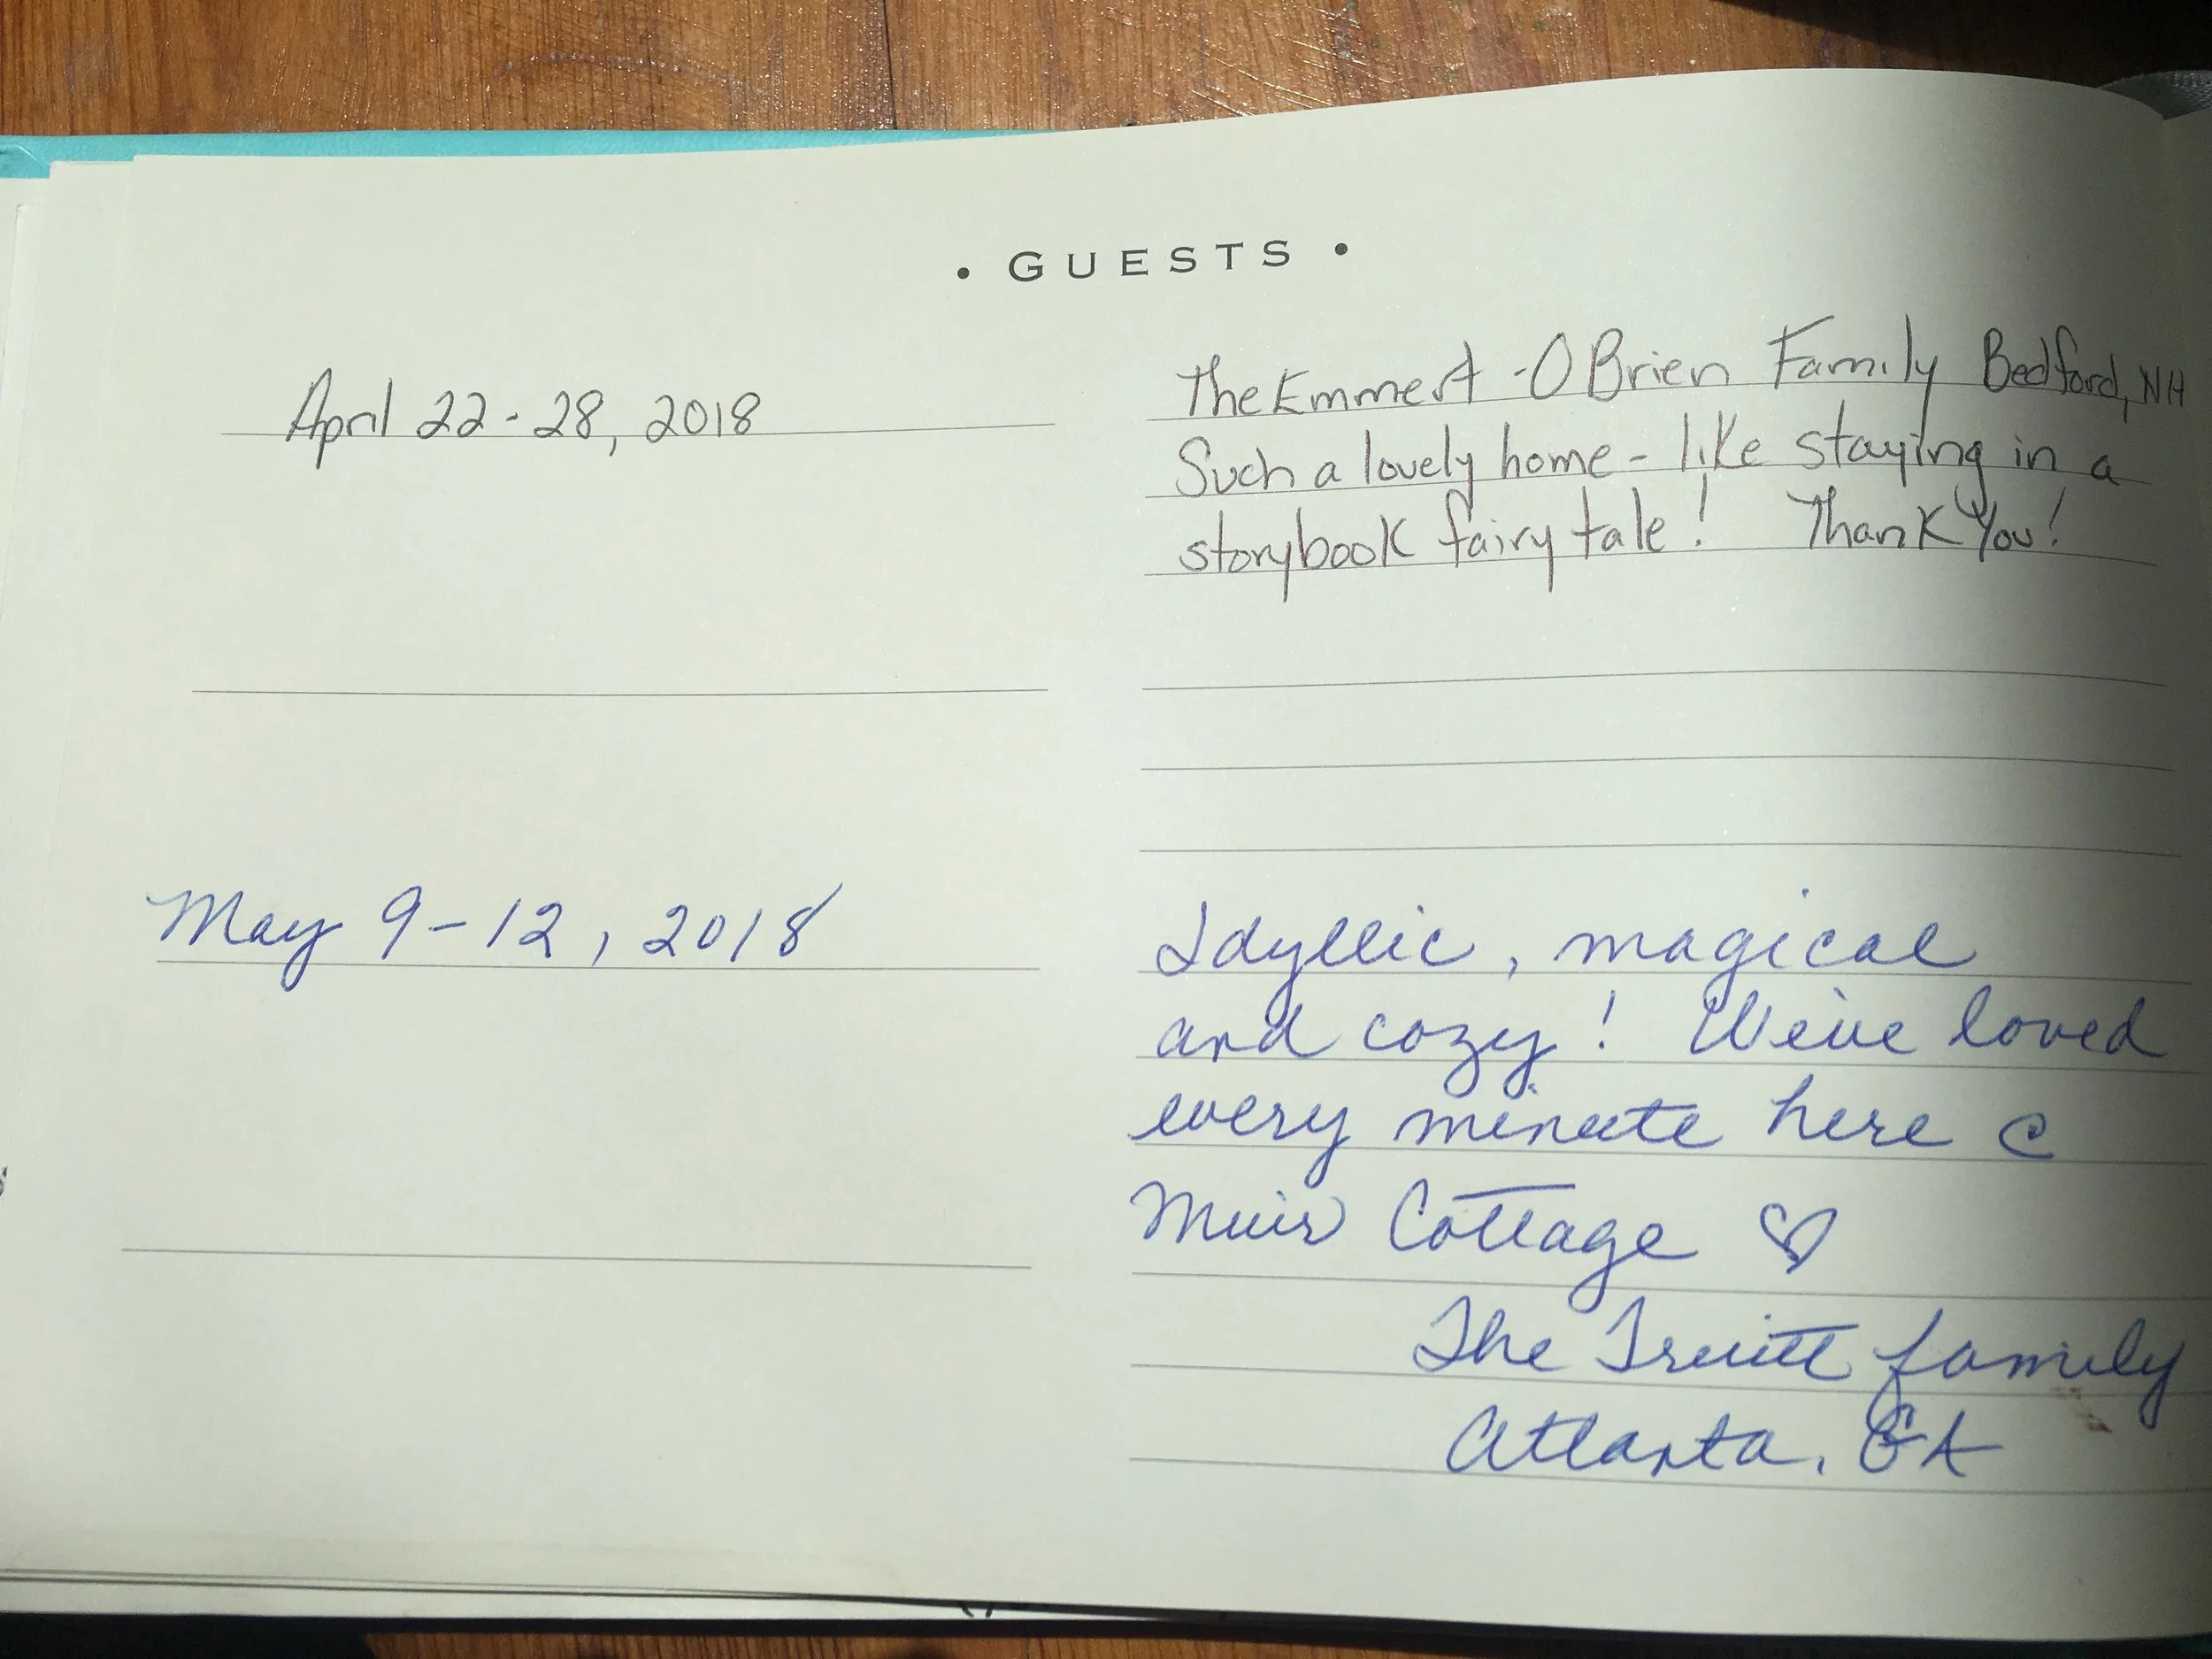 • GUESTS •
April 22-28, 2018
The Emmert-OBrien Family Bedford, NH
Such a lovely home - like staying in a
storybook fairy tale! Thank You!
May 9-12, 2018
Idyllic, magical
and cozy! We've loved
every minute here @
Muir Cottage ♡
The Truitt family
Atlanta, GA